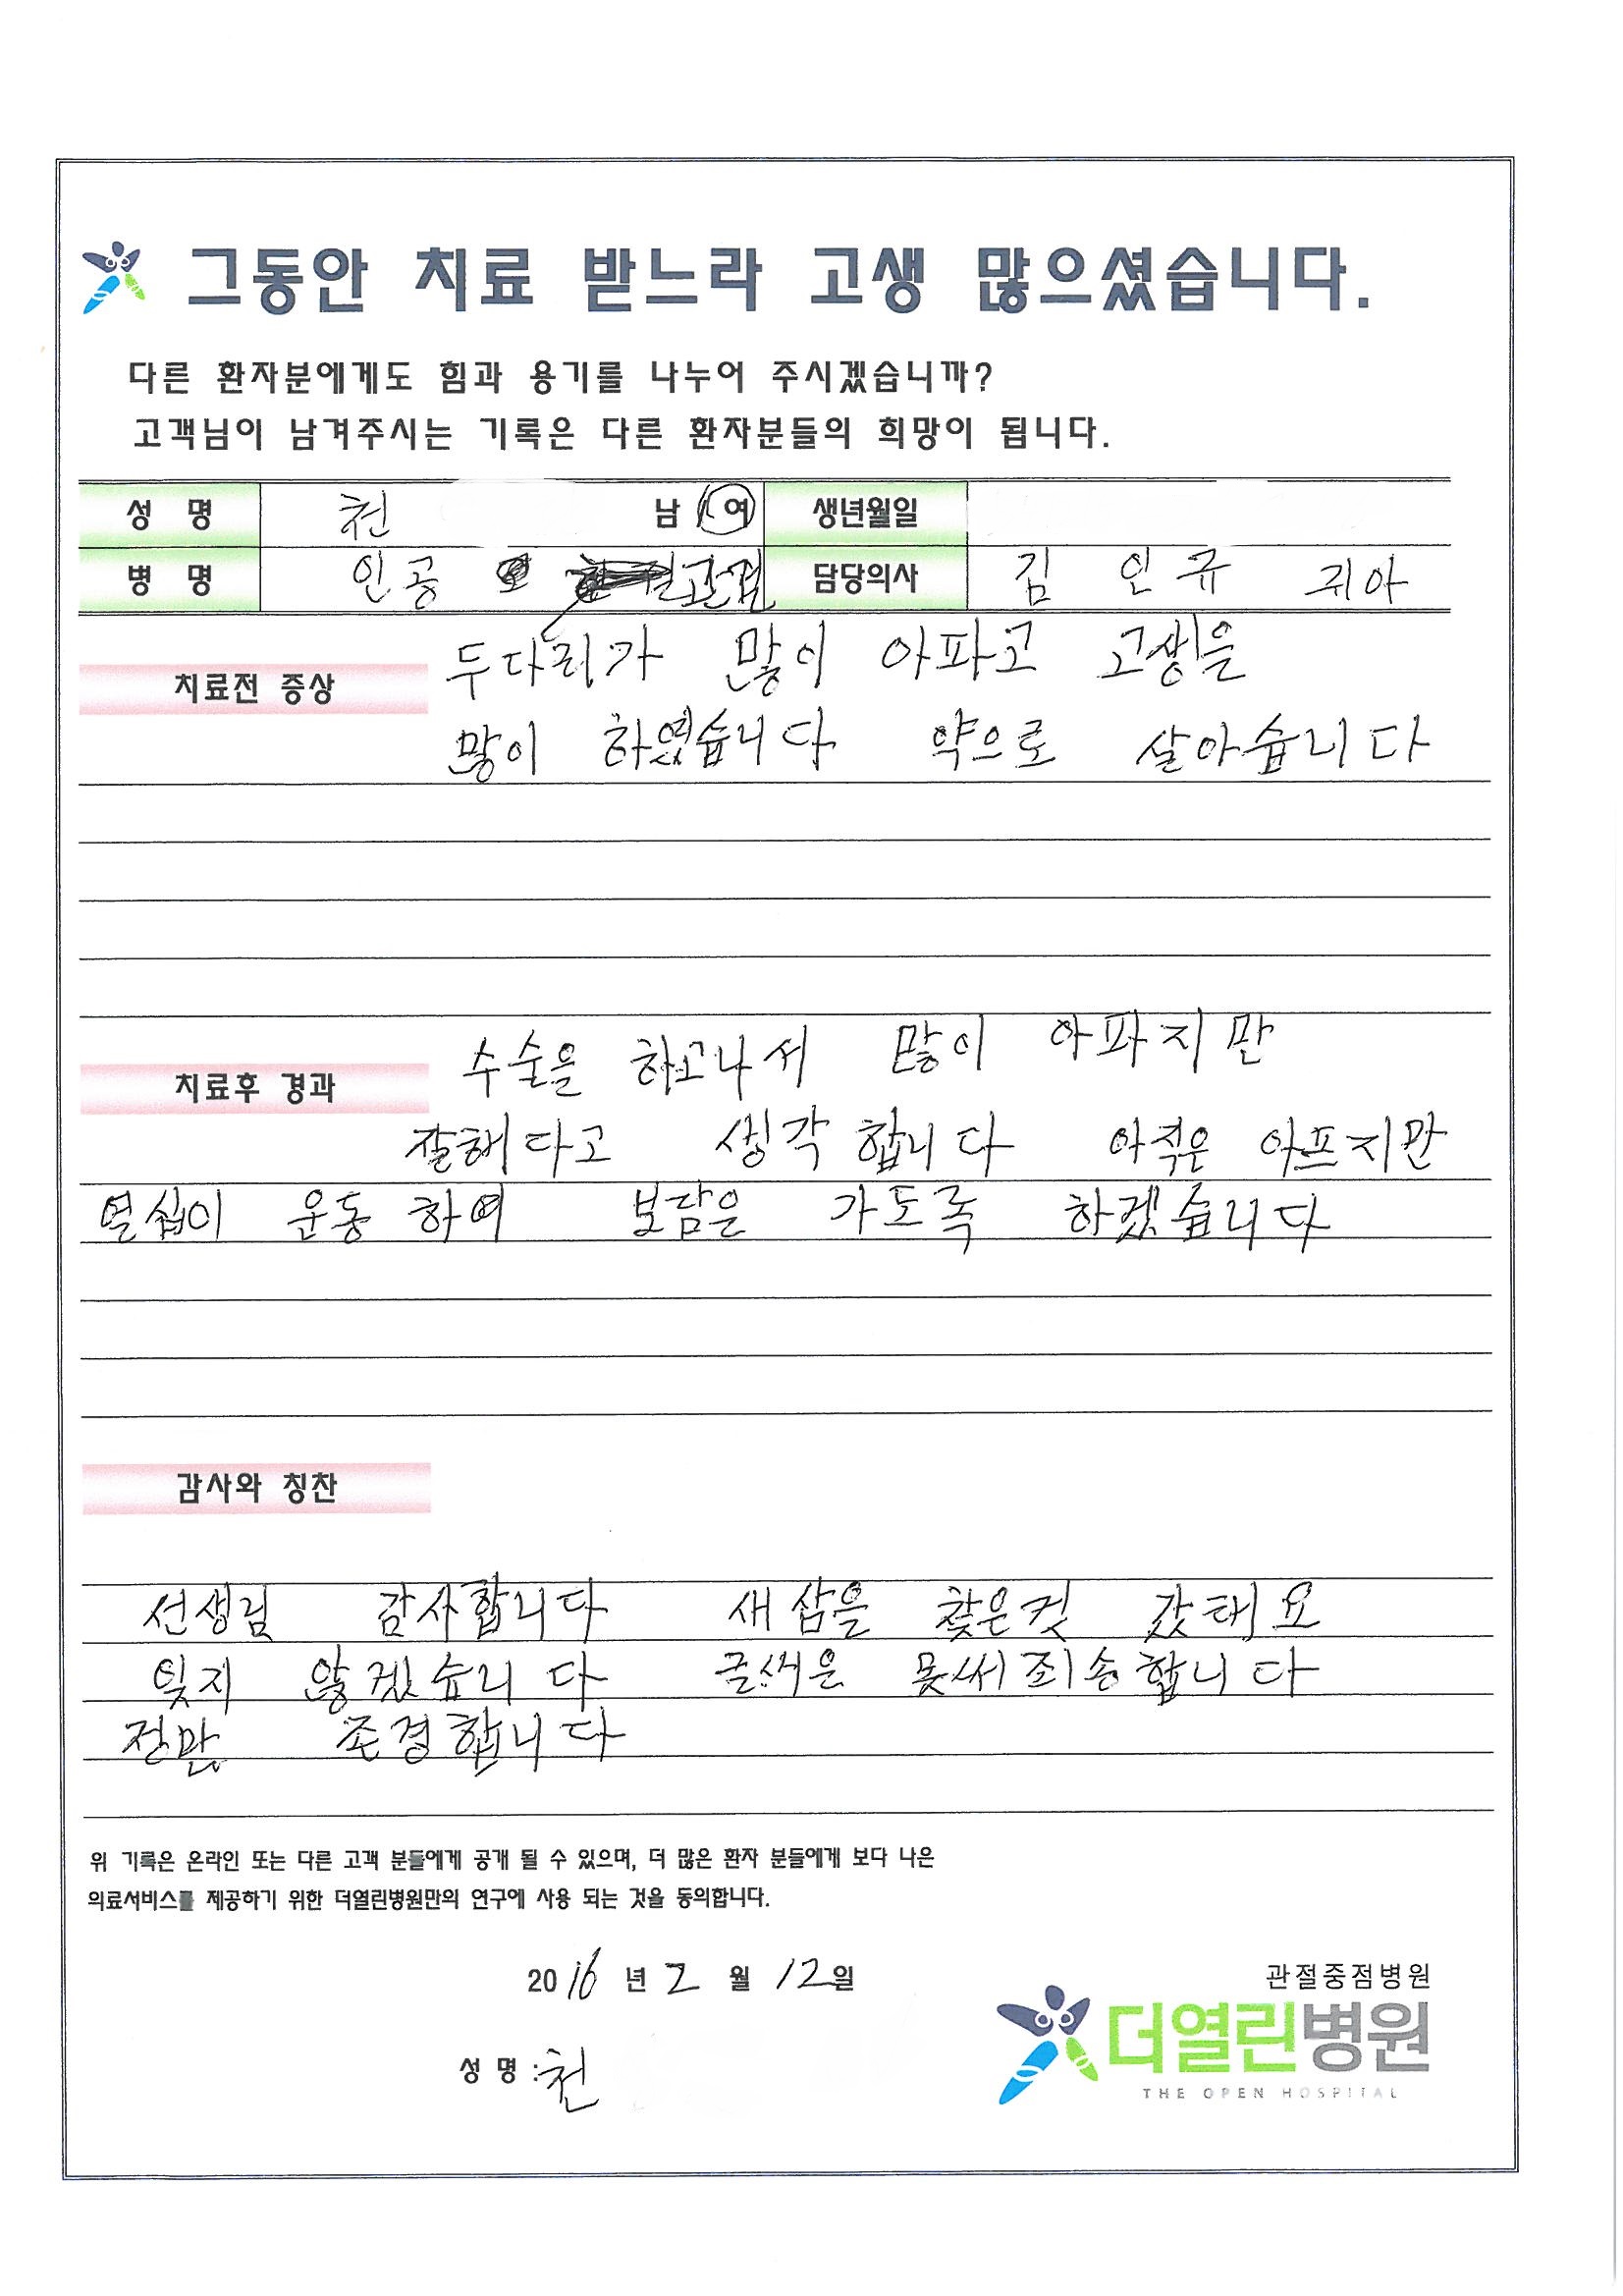 그동안 치료 받느라 고생 많으셨습니다.
다른 환자분에게도 힘과 용기를 나누어 주시겠습니까?
고객님이 남겨주시는 기록은 다른 환자분들의 희망이 됩니다.
성 명 천 남 / 여 생년월일
병 명 인공 관절 담당의사 김 인규 귀아
치료전 증상 두다리가 많이 아파고 고생을
많이 하였습니다 약으로 살아습니다
치료후 경과 수술을 하고나서 많이 아파지만
잘해다고 생각 합니다 아직은 아프지만
열십이 운동 하여 보담은 가도록 하겠습니다
감사와 칭찬
선생님 감사합니다 새 삼을 찾은것 갔태요
잊지 않겠습니다 글씨은 못써 죄송합니다
전만 존경합니다
위 기록은 온라인 또는 다른 고객 분들에게 공개 될 수 있으며, 더 많은 환자 분들에게 보다 나은
의료서비스를 제공하기 위한 더열린병원만의 연구에 사용 되는 것을 동의합니다.
2016 년 2 월 12일
관절중점병원
더열린병원
THE OPEN HOSPITAL
성 명 : 천